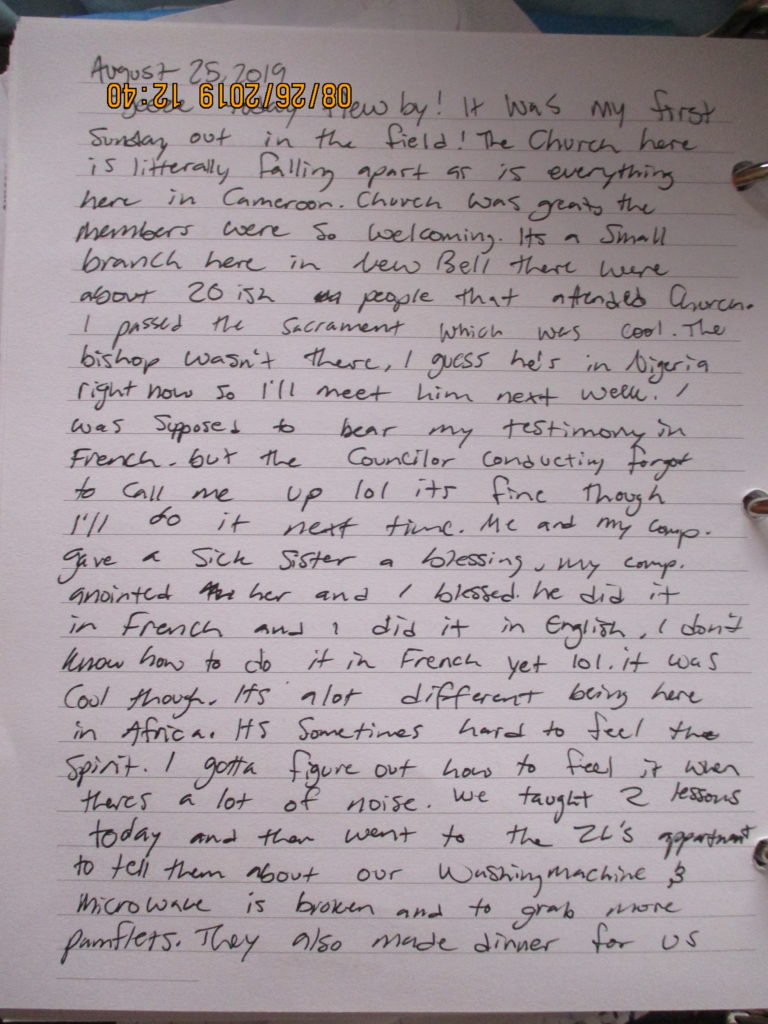 August 25, 2019
08/26/2019 12:40
Today flew by! It was my first
Sunday out in the field! The Church here
is litterally falling apart as is everything
here in Cameroon. Church was great, the
members were so welcoming. Its a small
branch here in New Bell there were
about 20 ish people that attended Church.
I passed the sacrament which was cool. The
bishop wasn't there, I guess he's in Nigeria
right now so I'll meet him next week. I
was supposed to bear my testimony in
French. but the Councilor conducting forgot
to call me up lol its fine though
I'll do it next time. Me and my comp.
gave a sick sister a blessing, my comp.
anointed her and I blessed. he did it
in French and I did it in English, I don't
know how to do it in French yet lol. it was
cool though. Its alot different being here
in Africa. Its sometimes hard to feel the
spirit. I gotta figure out how to feel it when
theres a lot of noise. We taught 2 lessons
today and then went to the ZL's appartment
to tell them about our Washingmachine &
microwave is broken and to grab more
pamflets. They also made dinner for us